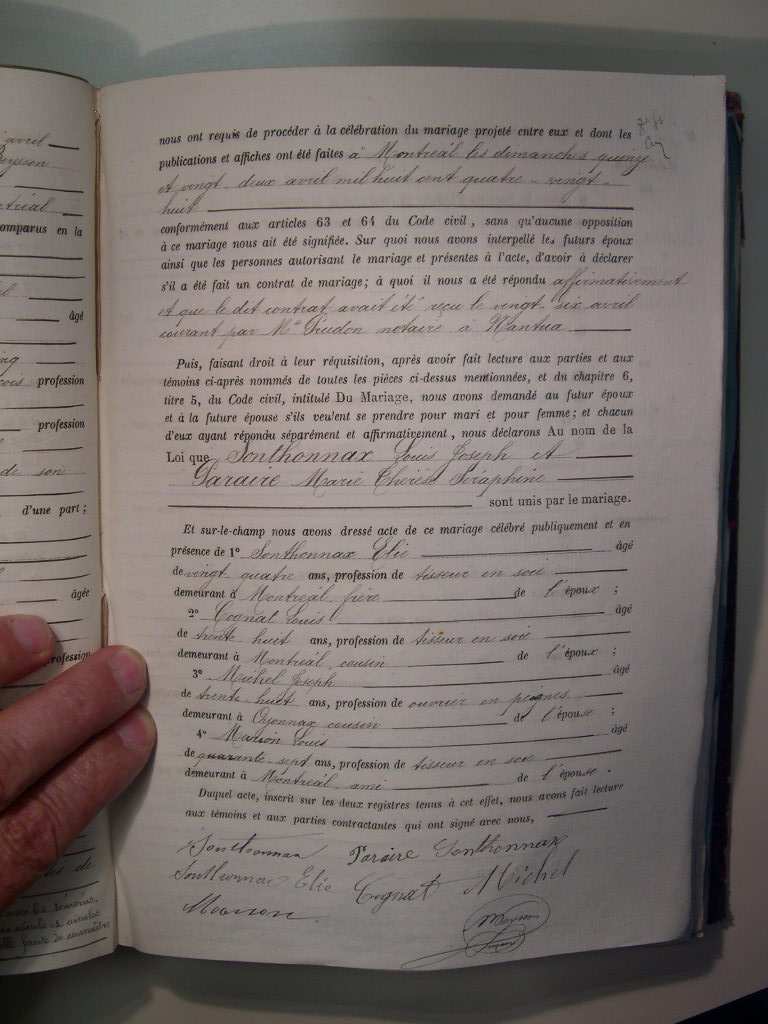 avril
Beysson
Montréal
comparus en la
âgé
profession
profession
de son
d'une part ;
âgée
profession
nous ont requis de procéder à la célébration du mariage projeté entre eux et dont les
publications et affiches ont été faites à Montréal les dimanches quinze
et vingt-deux avril mil huit cent quatre-vingt-
huit
conformément aux articles 63 et 64 du Code civil, sans qu'aucune opposition
à ce mariage nous ait été signifiée. Sur quoi nous avons interpellé les futurs époux
ainsi que les personnes autorisant le mariage et présentes à l'acte, d'avoir à déclarer
s'il a été fait un contrat de mariage; à quoi il nous a été répondu affirmativement
et que le dit contrat avait été reçu le vingt-six avril
courant par Me notaire à Nantua
Puis, faisant droit à leur réquisition, après avoir fait lecture aux parties et aux
témoins ci-après nommés de toutes les pièces ci-dessus mentionnées, et du chapitre 6,
titre 5, du Code civil, intitulé Du Mariage, nous avons demandé au futur époux
et à la future épouse s'ils veulent se prendre pour mari et pour femme; et chacun
d'eux ayant répondu séparément et affirmativement, nous déclarons Au nom de la
Loi que Sonthonnax Louis Joseph et
Paraire Marie Thérèse Séraphine
sont unis par le mariage.
Et sur-le-champ nous avons dressé acte de ce mariage célébré publiquement et en
présence de 1° Sonthonnax Elie âgé
de vingt quatre ans, profession de tisseur en soie
demeurant à Montréal frère de l'époux ;
2° Cognat Louis âgé
de trente huit ans, profession de tisseur en soie
demeurant à Montréal, cousin de l'époux ;
3° Michel Joseph âgé
de trente huit ans, profession de ouvrier en peignes
demeurant à Oyonnax cousin de l'épouse ;
4° Marion Louis âgé
de quarante-sept ans, profession de tisseur en soie
demeurant à Montréal ami de l'épouse.
Duquel acte, inscrit sur les deux registres tenus à cet effet, nous avons fait lecture
aux témoins et aux parties contractantes qui ont signé avec nous,
Sonthonnax Paraire Sonthonnax
Sonthonnax Elie Cognat Michel
Marion